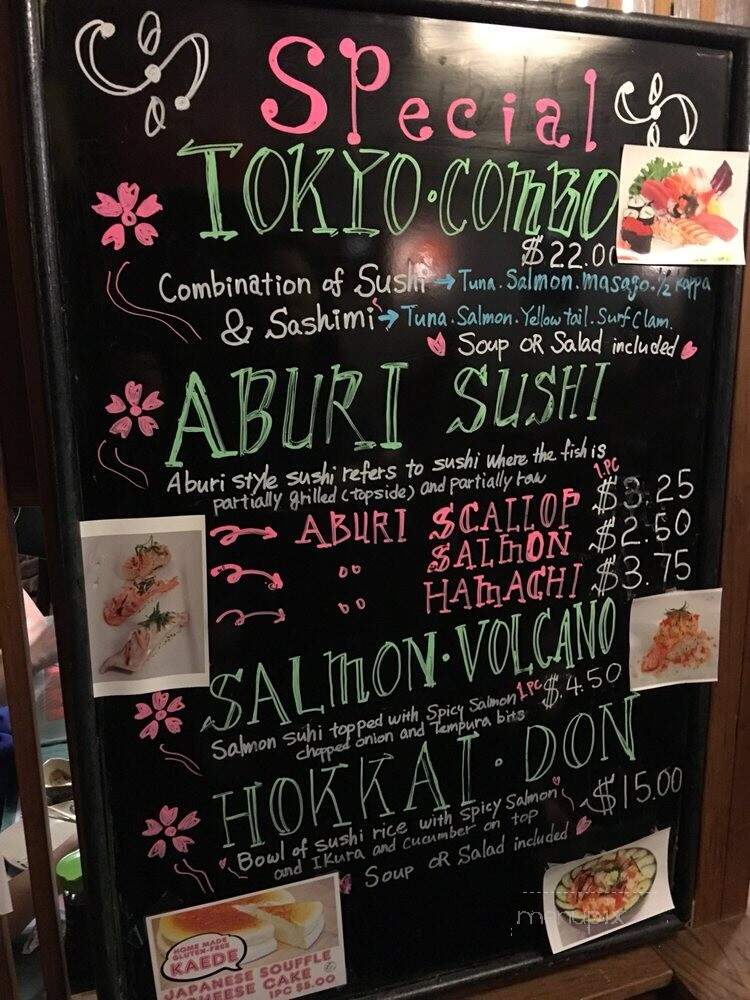 SPecial
TOKYO · COMBO
$22.00
Combination of Sushi → Tuna. Salmon. masago. 1/2 Kappa
& Sashimi → Tuna. Salmon. Yellow tail. Surf Clam.
Soup OR Salad included
ABURI SUSHI
Aburi style sushi refers to sushi where the fish is
partially grilled (topside) and partially raw
1.PC
ABURI SCALLOP $3.25
" SALMON $2.50
" HAMACHI $3.75
SALMON · VOLCANO
1.PC $4.50
Salmon Suhi topped with Spicy Salmon
chopped onion and Tempura bits
HOKKAI · DON
$15.00
Bowl of Sushi rice with Spicy Salmon
and IKura and Cucumber on top
Soup OR Salad included
HOME MADE
GLUTEN-FREE
KAEDE
JAPANESE SOUFFLE
CHEESE CAKE
1PC $5.00
menupix